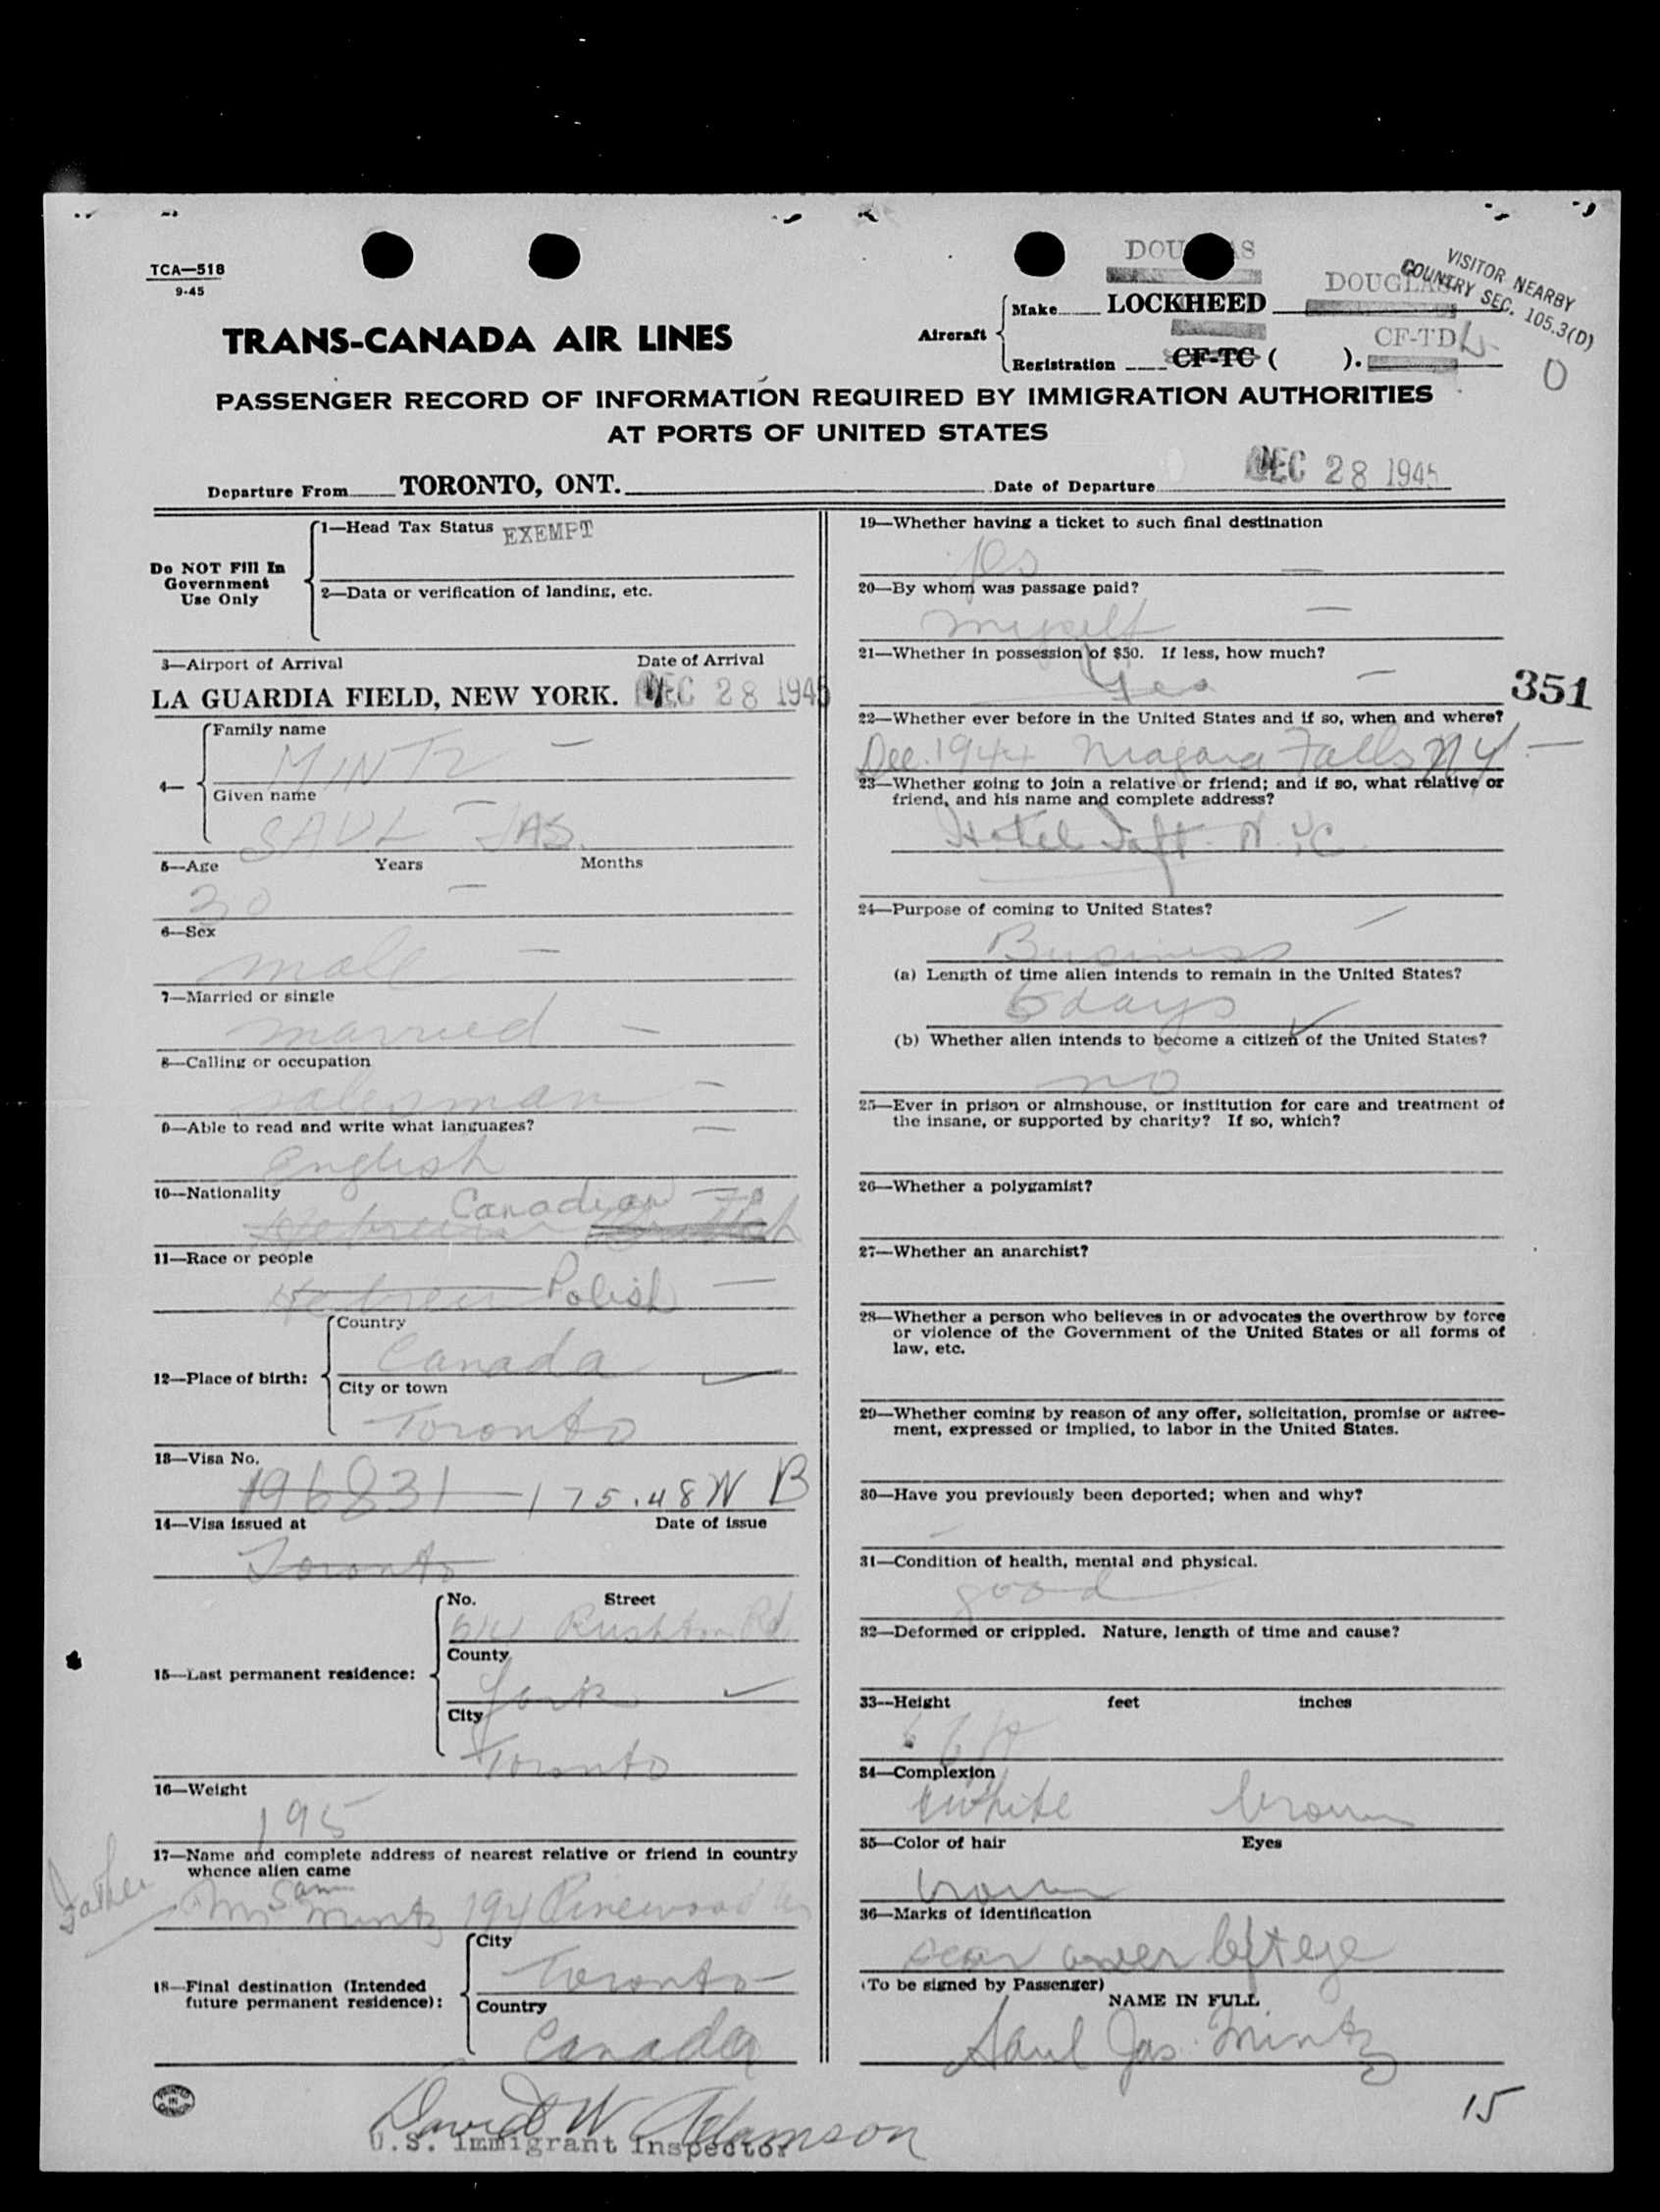 TCA—518
9-45
DOUGLAS
DOUGLAS
VISITOR NEARBY
COUNTRY SEC. 105.3(D)
TRANS-CANADA AIR LINES
Aircraft
Make LOCKHEED
Registration CF-TC ( ). CF-TDL
0
PASSENGER RECORD OF INFORMATION REQUIRED BY IMMIGRATION AUTHORITIES
AT PORTS OF UNITED STATES
Departure From TORONTO, ONT. Date of Departure DEC 28 1945
Do NOT Fill In
Government
Use Only
1—Head Tax Status EXEMPT
2—Data or verification of landing, etc.
3—Airport of Arrival Date of Arrival
LA GUARDIA FIELD, NEW YORK. DEC 28 1945
4—
Family name
MINTZ —
Given name
SAUL — JAS.
5—Age Years Months
30 —
6—Sex
male —
7—Married or single
married —
8—Calling or occupation
salesman —
9—Able to read and write what languages?
English —
10—Nationality
Canadian
Hebrew British
11—Race or people
Hebrew Polish —
12—Place of birth:
Country
Canada
City or town
Toronto
13—Visa No.
196831 175.48W B
14—Visa issued at Date of issue
Toronto
15—Last permanent residence:
No. Street
614 Rushton Rd
County
York
City
Toronto
16—Weight
195
17—Name and complete address of nearest relative or friend in country
whence alien came
Father
Sam
Mr Mintz 194 Pinewood
18—Final destination (Intended
future permanent residence):
City
Toronto
Country
Canada
19—Whether having a ticket to such final destination
yes —
20—By whom was passage paid?
myself —
21—Whether in possession of $50. If less, how much?
Yes —
351
22—Whether ever before in the United States and if so, when and where?
Dec. 1944 Niagara Falls NY —
23—Whether going to join a relative or friend; and if so, what relative or
friend, and his name and complete address?
Hotel Taft N.Y.C
24—Purpose of coming to United States?
Business
(a) Length of time alien intends to remain in the United States?
6 days
(b) Whether alien intends to become a citizen of the United States?
no
25—Ever in prison or almshouse, or institution for care and treatment of
the insane, or supported by charity? If so, which?
26—Whether a polygamist?
27—Whether an anarchist?
28—Whether a person who believes in or advocates the overthrow by force
or violence of the Government of the United States or all forms of
law, etc.
29—Whether coming by reason of any offer, solicitation, promise or agree-
ment, expressed or implied, to labor in the United States.
30—Have you previously been deported; when and why?
31—Condition of health, mental and physical.
good
32—Deformed or crippled. Nature, length of time and cause?
33—Height feet inches
34—Complexion
White brown
35—Color of hair Eyes
brown
36—Marks of identification
scar over left eye
(To be signed by Passenger)
NAME IN FULL
Saul Jas. Mintz
PRINTED IN CANADA
David W Adamson
U.S. Immigrant Inspector
15